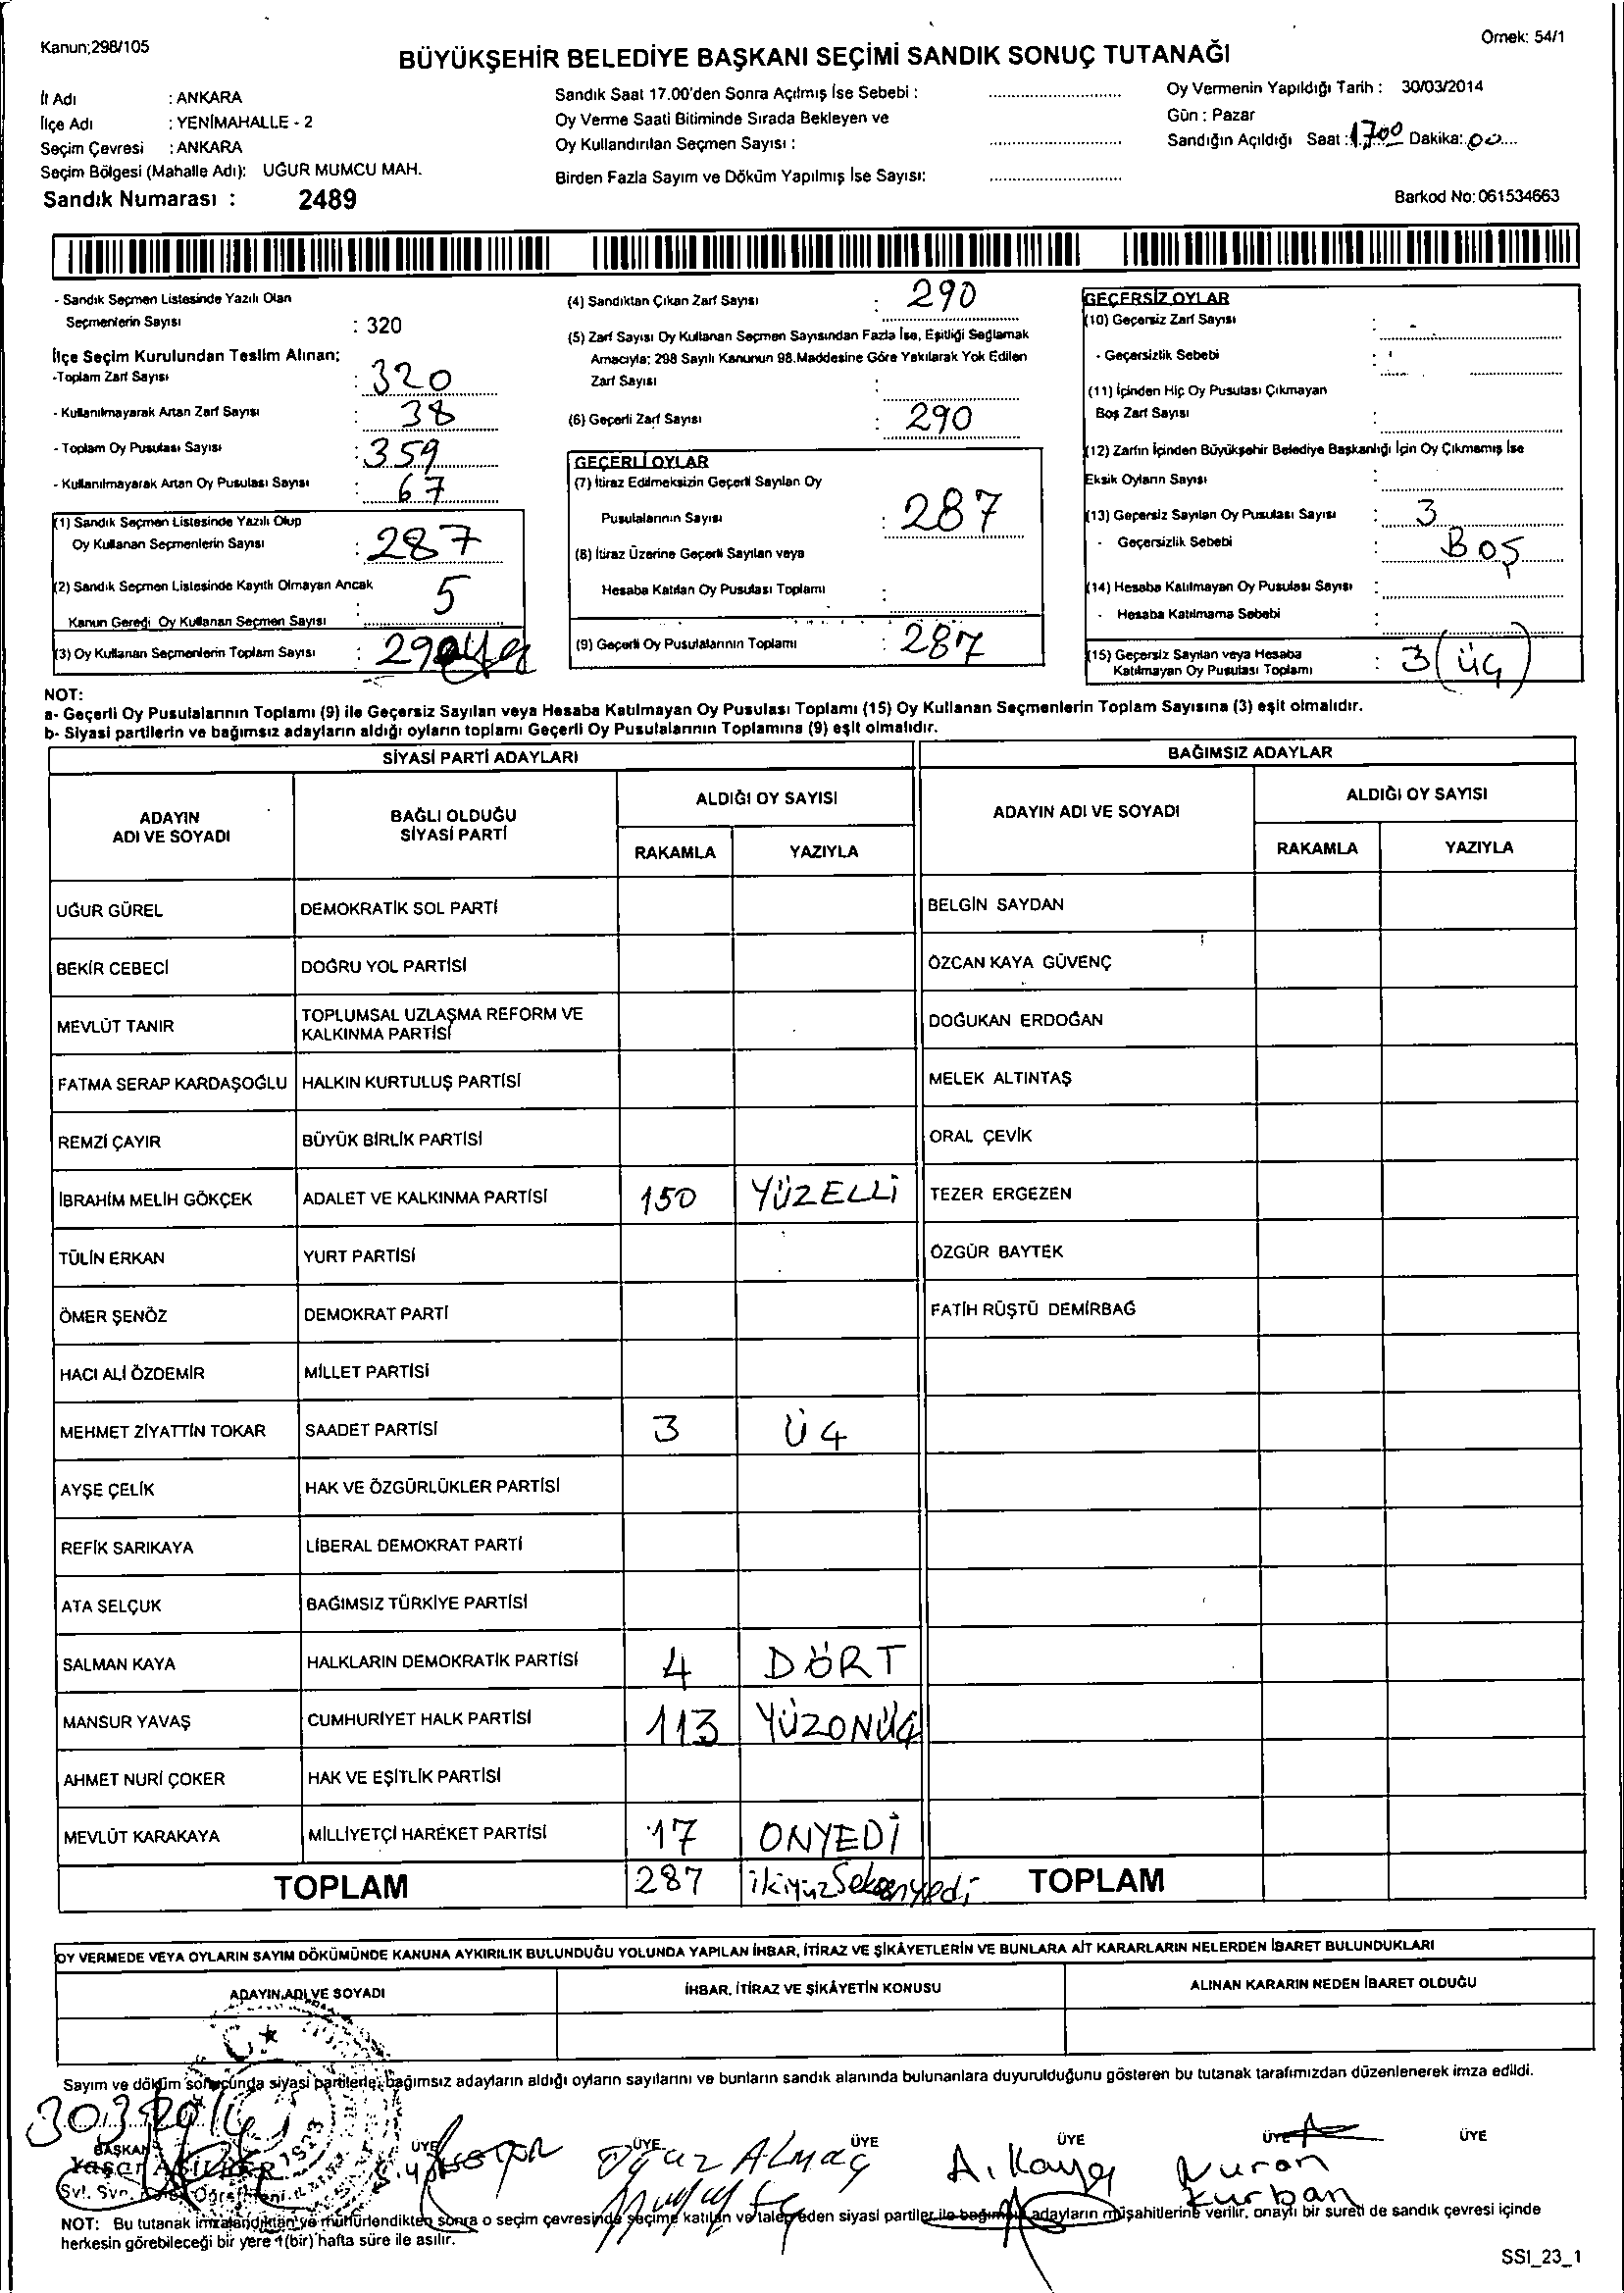 Kanun;298/105
Örnek: 54/1
BÜYÜKŞEHİR BELEDİYE BAŞKANI SEÇİMİ SANDIK SONUÇ TUTANAĞI
İl Adı : ANKARA
İlçe Adı : YENİMAHALLE - 2
Seçim Çevresi : ANKARA
Seçim Bölgesi (Mahalle Adı): UĞUR MUMCU MAH.
Sandık Numarası : 2489
Sandık Saat 17.00'den Sonra Açılmış İse Sebebi :
Oy Verme Saati Bitiminde Sırada Bekleyen ve
Oy Kullandırılan Seçmen Sayısı :
Birden Fazla Sayım ve Döküm Yapılmış İse Sayısı:
Oy Vermenin Yapıldığı Tarih : 30/03/2014
Gün : Pazar
Sandığın Açıldığı Saat : 1700 Dakika: 00
Barkod No: 061534663
- Sandık Seçmen Listesinde Yazılı Olan
Seçmenlerin Sayısı : 320
İlçe Seçim Kurulundan Teslim Alınan;
-Toplam Zarf Sayısı : 320
- Kullanılmayarak Artan Zarf Sayısı : 38
- Toplam Oy Pusulası Sayısı : 359
- Kullanılmayarak Artan Oy Pusulası Sayısı : 67
(1) Sandık Seçmen Listesinde Yazılı Olup
Oy Kullanan Seçmenlerin Sayısı : 287
(2) Sandık Seçmen Listesinde Kayıtlı Olmayan Ancak
Kanun Gereği Oy Kullanan Seçmen Sayısı : 5
(3) Oy Kullanan Seçmenlerin Toplam Sayısı :
(4) Sandıktan Çıkan Zarf Sayısı : 290
(5) Zarf Sayısı Oy Kullanan Seçmen Sayısından Fazla İse, Eşitliği Sağlamak
Amacıyla; 298 Sayılı Kanunun 98.Maddesine Göre Yakılarak Yok Edilen
Zarf Sayısı :
(6) Geçerli Zarf Sayısı : 290
GEÇERLİ OYLAR
(7) İtiraz Edilmeksizin Geçerli Sayılan Oy
Pusulalarının Sayısı : 287
(8) İtiraz Üzerine Geçerli Sayılan veya
Hesaba Katılan Oy Pusulası Toplamı :
(9) Geçerli Oy Pusulalarının Toplamı : 287
GEÇERSİZ OYLAR
(10) Geçersiz Zarf Sayısı :
- Geçersizlik Sebebi :
(11) İçinden Hiç Oy Pusulası Çıkmayan
Boş Zarf Sayısı :
(12) Zarfın İçinden Büyükşehir Belediye Başkanlığı İçin Oy Çıkmamış İse
Eksik Oyların Sayısı :
(13) Geçersiz Sayılan Oy Pusulası Sayısı : 3
- Geçersizlik Sebebi : BOŞ
(14) Hesaba Katılmayan Oy Pusulası Sayısı :
- Hesaba Katılmama Sebebi :
(15) Geçersiz Sayılan veya Hesaba
Katılmayan Oy Pusulası Toplamı : 3 (üç)
NOT:
a- Geçerli Oy Pusulalarının Toplamı (9) ile Geçersiz Sayılan veya Hesaba Katılmayan Oy Pusulası Toplamı (15) Oy Kullanan Seçmenlerin Toplam Sayısına (3) eşit olmalıdır.
b- Siyasi partilerin ve bağımsız adayların aldığı oyların toplamı Geçerli Oy Pusulalarının Toplamına (9) eşit olmalıdır.
SİYASİ PARTİ ADAYLARI BAĞIMSIZ ADAYLAR
ADAYIN ADI VE SOYADI BAĞLI OLDUĞU SİYASİ PARTİ ALDIĞI OY SAYISI ADAYIN ADI VE SOYADI ALDIĞI OY SAYISI
RAKAMLA YAZIYLA RAKAMLA YAZIYLA
UĞUR GÜREL DEMOKRATİK SOL PARTİ BELGİN SAYDAN
BEKİR CEBECİ DOĞRU YOL PARTİSİ ÖZCAN KAYA GÜVENÇ
MEVLÜT TANIR TOPLUMSAL UZLAŞMA REFORM VE KALKINMA PARTİSİ DOĞUKAN ERDOĞAN
FATMA SERAP KARDAŞOĞLU HALKIN KURTULUŞ PARTİSİ MELEK ALTINTAŞ
REMZİ ÇAYIR BÜYÜK BİRLİK PARTİSİ ORAL ÇEVİK
İBRAHİM MELİH GÖKÇEK ADALET VE KALKINMA PARTİSİ 150 YÜZELLİ TEZER ERGEZEN
TÜLİN ERKAN YURT PARTİSİ ÖZGÜR BAYTEK
ÖMER ŞENÖZ DEMOKRAT PARTİ FATİH RÜŞTÜ DEMİRBAĞ
HACI ALİ ÖZDEMİR MİLLET PARTİSİ
MEHMET ZİYATTİN TOKAR SAADET PARTİSİ 3 ÜÇ
AYŞE ÇELİK HAK VE ÖZGÜRLÜKLER PARTİSİ
REFİK SARIKAYA LİBERAL DEMOKRAT PARTİ
ATA SELÇUK BAĞIMSIZ TÜRKİYE PARTİSİ
SALMAN KAYA HALKLARIN DEMOKRATİK PARTİSİ 4 DÖRT
MANSUR YAVAŞ CUMHURİYET HALK PARTİSİ 113 YÜZONÜÇ
AHMET NURİ ÇOKER HAK VE EŞİTLİK PARTİSİ
MEVLÜT KARAKAYA MİLLİYETÇİ HAREKET PARTİSİ 17 ONYEDİ
TOPLAM 287 ikiyüzSeksenyedi TOPLAM
OY VERMEDE VEYA OYLARIN SAYIM DÖKÜMÜNDE KANUNA AYKIRILIK BULUNDUĞU YOLUNDA YAPILAN İHBAR, İTİRAZ VE ŞİKAYETLERİN VE BUNLARA AİT KARARLARIN NELERDEN İBARET BULUNDUKLARI
ADAYIN ADI VE SOYADI İHBAR, İTİRAZ VE ŞİKAYETİN KONUSU ALINAN KARARIN NEDEN İBARET OLDUĞU
Sayım ve döküm sonucunda siyasi partilerle, bağımsız adayların aldığı oyların sayılarını ve bunların sandık alanında bulunanlara duyurulduğunu gösteren bu tutanak tarafımızdan düzenlenerek imza edildi.
BAŞKAN ÜYE ÜYE ÜYE ÜYE ÜYE ÜYE
Yaşar
Oğuz ALMAÇ
A. Kaya
Nuran Kurban
NOT: Bu tutanak imzalandıktan ve mühürlendikten sonra o seçim çevresinde seçime katılan ve talep eden siyasi partiler ile bağımsız adayların müşahitlerine verilir, onaylı bir sureti de sandık çevresi içinde
herkesin görebileceği bir yere 1(bir) hafta süre ile asılır.
SSI_23_1